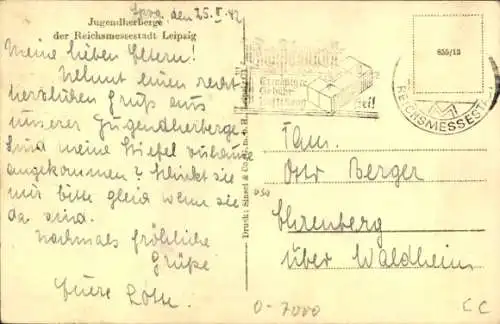 Lpzg. den 25.I.42
Jugendherberge
der Reichsmessestadt Leipzig
Meine lieben Eltern!
Nehmt einen recht
herzlichen Gruß aus
unserer Jugendherberge.
Sind meine Stiefel zuhause
angekommen? Schickt sie
mir bitte gleich wenn sie
da sind.
Nochmals fröhliche
Grüße
Eure Lotte.
Druck: Sinsel & Co. G. m. b. H.
REICHSMESSESTADT
655/13
Fam.
Otto Berger
Ehrenberg
über Waldheim
0-7000
CC